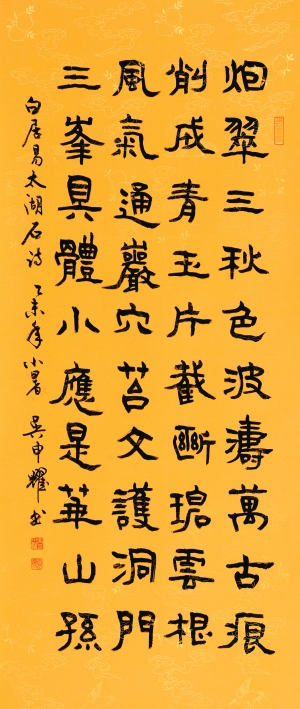 炮翠三秋色波濤萬古痕
削成青玉片截斷碧雲根
風氣通巖穴苔文護洞門
三峯具體小應是華山孫
白居易太湖石诗 乙未年小暑 吴申耀书